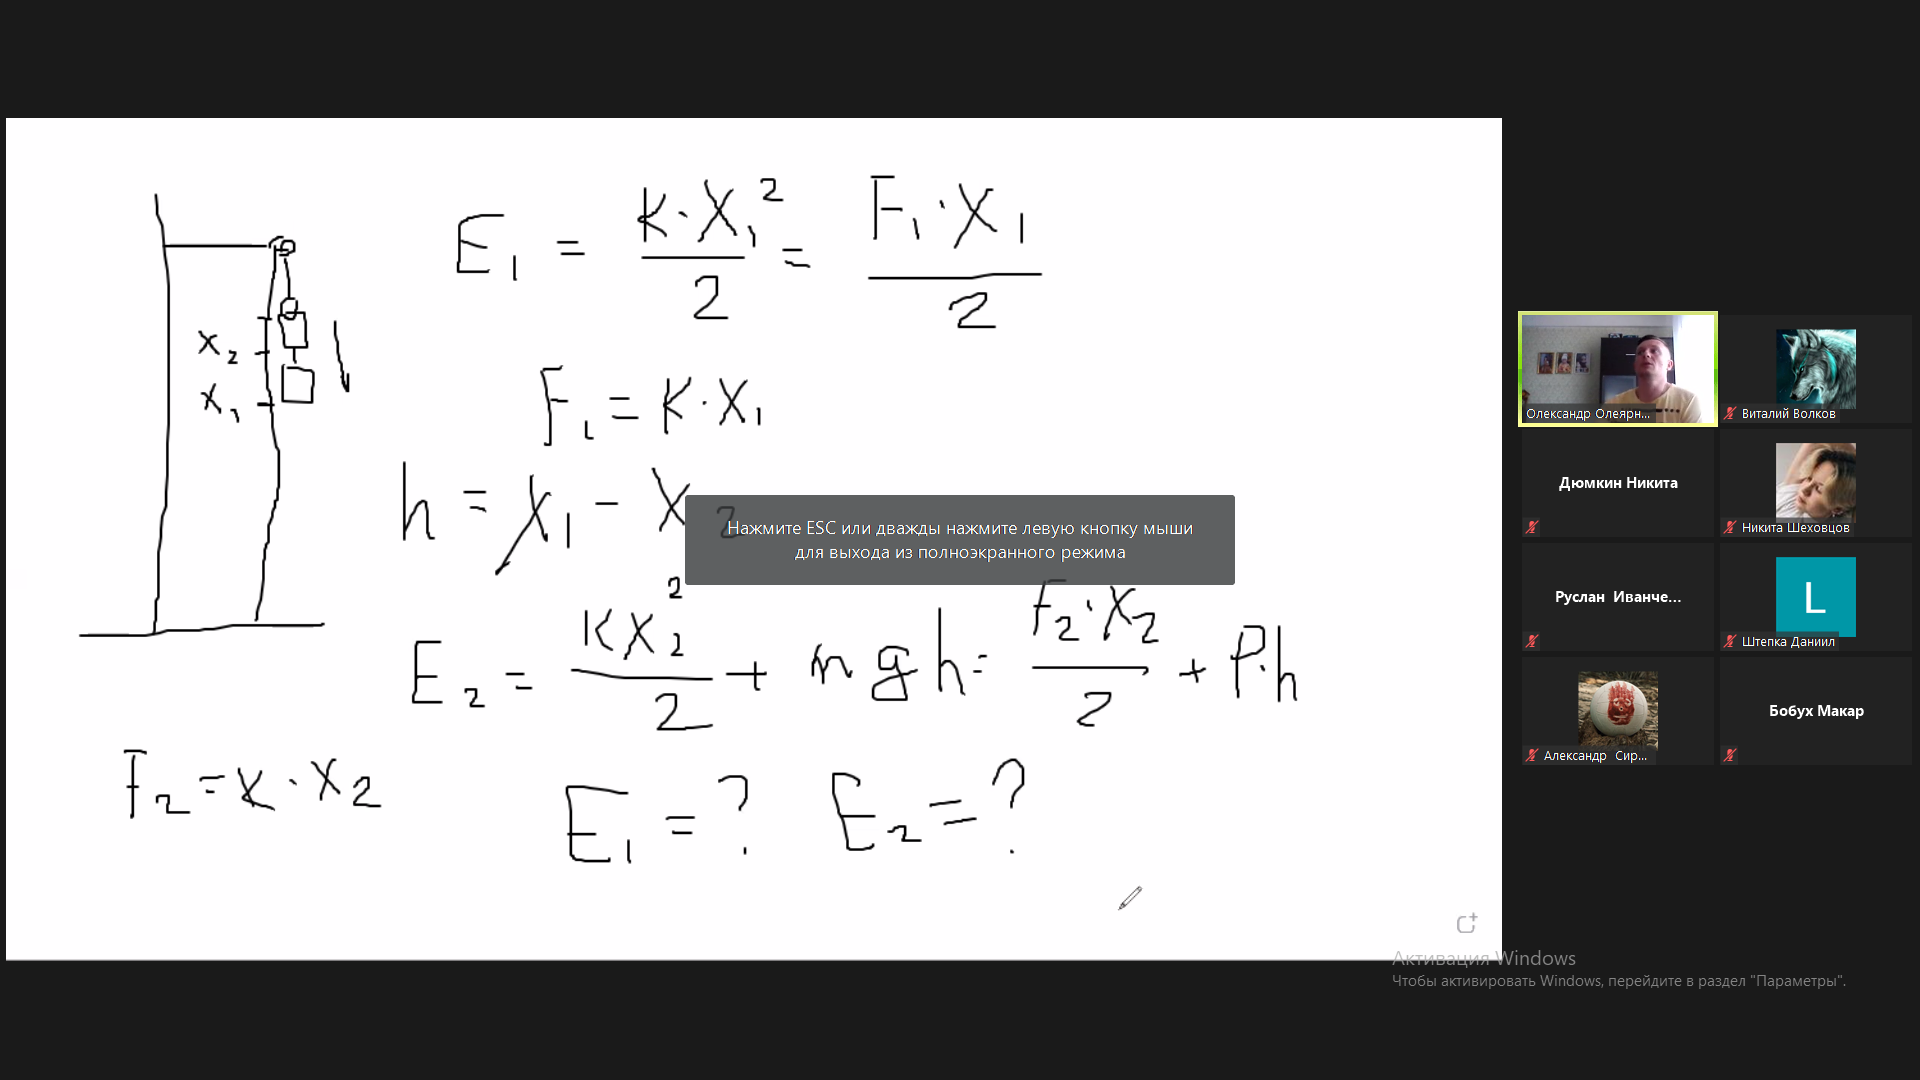 E₁ = K·X₁²/2 = F₁·X₁/2
F₁ = K·X₁
h = X₁ - X₂
Нажмите ESC или дважды нажмите левую кнопку мыши
для выхода из полноэкранного режима
X₂
X₁
E₂ = KX₂²/2 + mgh = F₂·X₂/2 + P·h
F₂ = K·X₂
E₁ = ? E₂ = ?
Олександр Олеярн...
Виталий Волков
Дюмкин Никита
Никита Шеховцов
Руслан Иванче...
L
Штепка Даниил
Александр Сир...
Бобух Макар
Активация Windows
Чтобы активировать Windows, перейдите в раздел "Параметры".